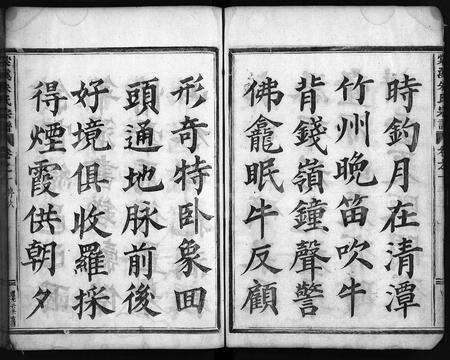 時釣月在清潭
竹州晚笛吹牛
背錢嶺鐘聲警
佛龕眠牛反顧
形奇特臥象回
頭通地脉前後
好境俱收羅採
得煙霞供朝夕